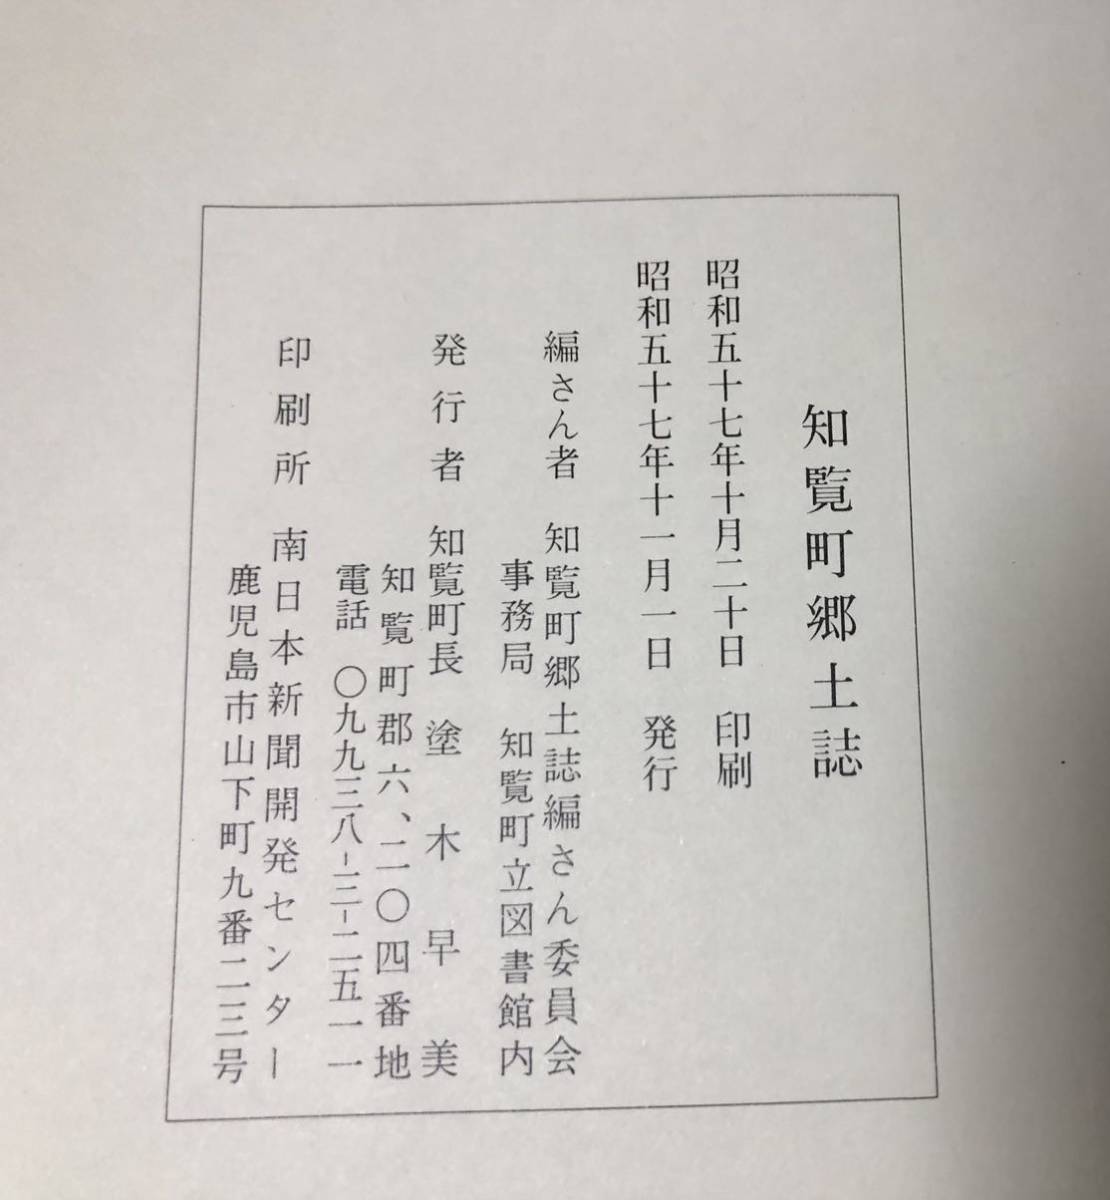 知覧町郷土誌
昭和五十七年十月二十日　印刷
昭和五十七年十一月一日　発行
編さん者　知覧町郷土誌編さん委員会
事務局　知覧町立図書館内
発行者　知覧町長　塗木早美
知覧町郡六、二〇四番地
電話　〇九九三八-三-二五一一
印刷所　南日本新聞開発センター
鹿児島市山下町九番二三号